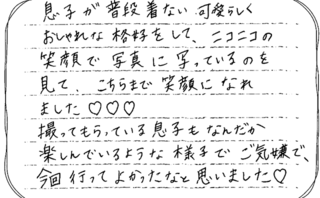 息子が普段着ない可愛らしく
おしゃれな格好をして、ニコニコの
笑顔で写真に写っているのを
見て、こちらまで笑顔になれ
ました♡♡♡
撮ってもらっている息子もなんだか
楽しんでいるような様子でご気嫌で、
今回行ってよかったなと思いました♡